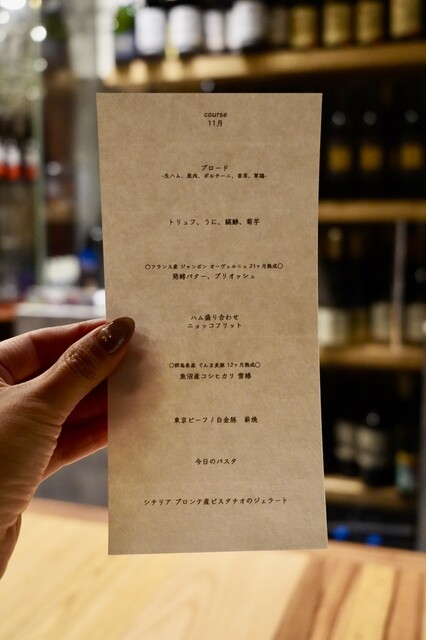 course
11月
ブロード
-生ハム、鹿肉、ポルチーニ、香茸、軍鶏-
トリュフ、うに、縞鯵、菊芋
〇フランス産 ジャンボン オーヴェルニュ 21ヶ月熟成〇
発酵バター、ブリオッシュ
ハム盛り合わせ
ニョッコフリット
〇群馬県産 ぐんま麦豚 12ヶ月熟成〇
魚沼産コシヒカリ 雪椿
東京ビーフ / 白金豚 薪焼
今日のパスタ
シチリア ブロンテ産ピスタチオのジェラート